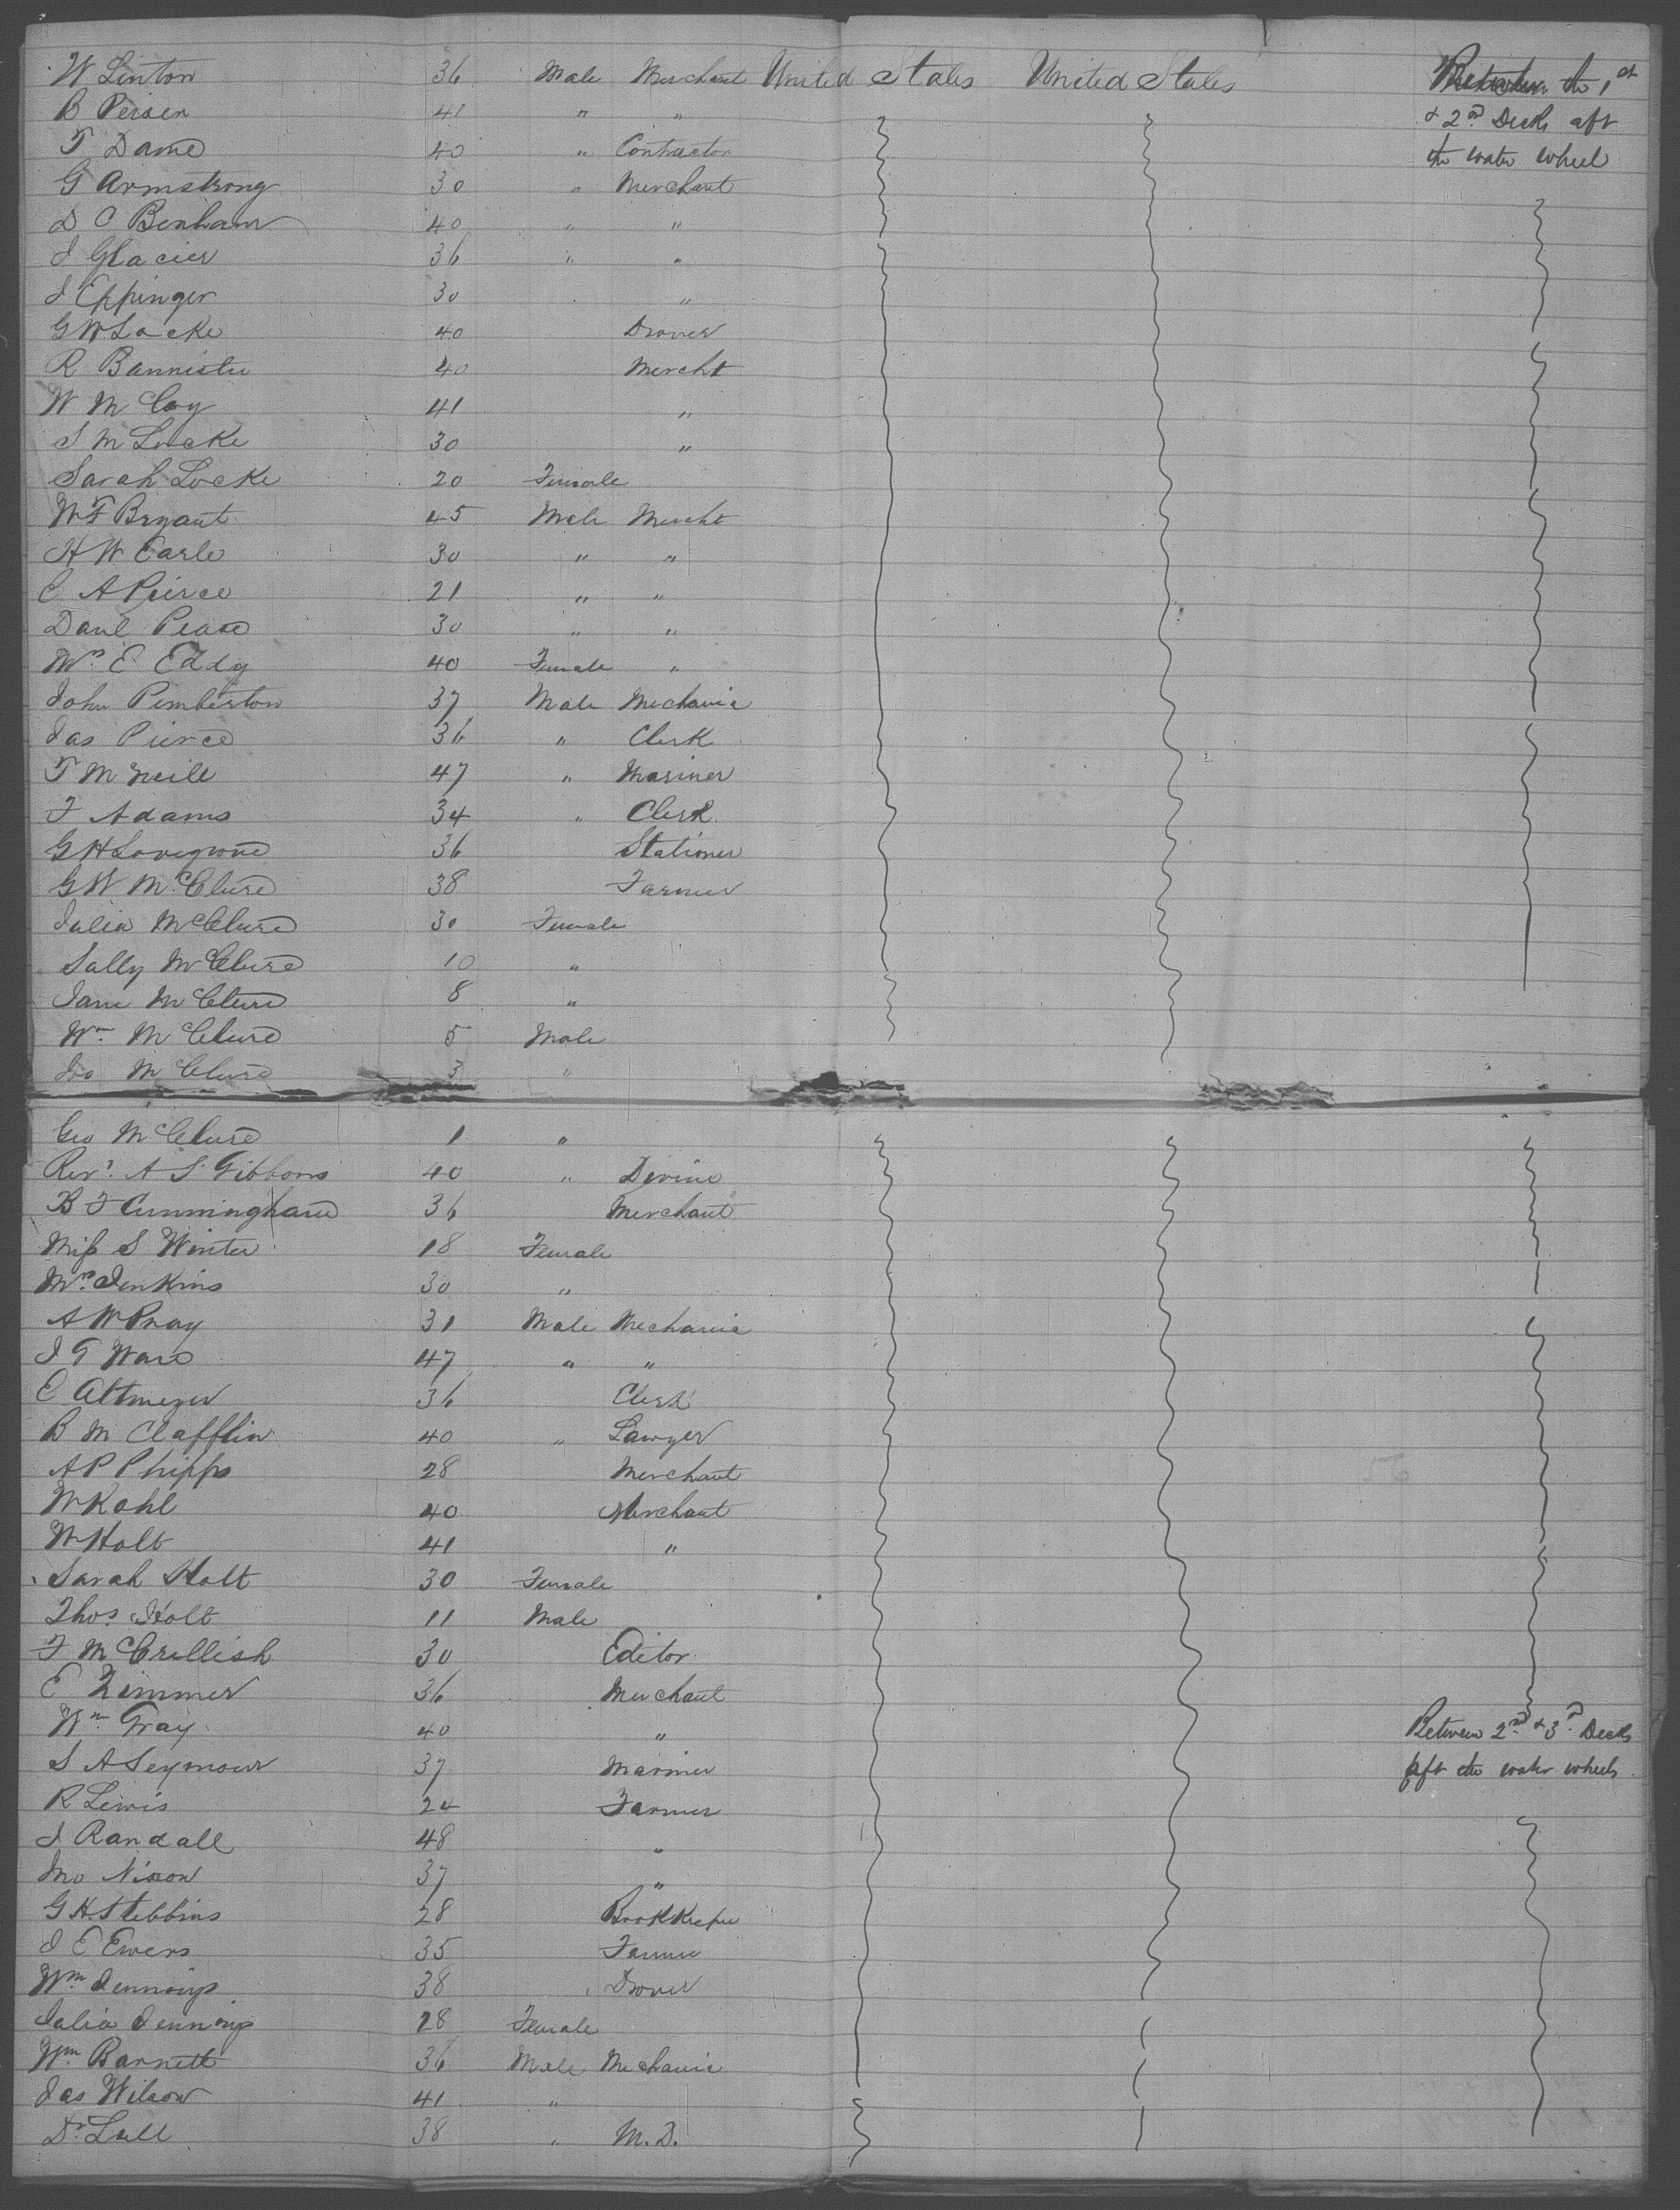 W Linton 36 Male Merchant United States United States Between the 1st
B Peisen 41 " " & 2nd Decks aft
T Dame 40 " Contractor the water wheel
G Armstrong 30 " Merchant
D C Benham 40 " "
J Glacier 36 " "
J Eppinger 30 "
G W Locke 40 Drover
R Bannister 40 Mercht
W McCoy 41 "
S M Locke 30 "
Sarah Locke 20 Female
W F Bryant 45 Male Mercht
H W Earle 30 " "
C A Pierce 21 " "
Danl Pease 30 " "
Mrs E Eddy 40 Female "
John Pemberton 37 Male Mechanic
Jas Pierce 36 " Clerk
T McNeill 47 " Mariner
F Adams 34 " Clerk
G H Lovegrove 36 Stationer
G W McClure 38 Farmer
Julia McClure 30 Female
Sally McClure 10 "
Jane McClure 8 "
Wm McClure 5 Male
Jno McClure 3 "
Geo McClure 1 "
Revd. A S Gibbons 40 " Divine
B F Cunningham 36 Merchant
Miss S Winter 18 Female
Mrs Jenkins 30 "
A W Pray 31 Male Mechanic
J G Ware 47 " "
E Altmeyer 36 Clerk
B M Clafflin 40 " Lawyer
A P Phipps 28 Merchant
W Kohl 40 Merchant
W Holt 41 "
Sarah Holt 30 Female
Thos Holt 11 Male
F McCrellish 30 Editor
E Zimmer 36 Merchant
Wm Gray 40 " Between 2nd & 3rd Decks
S A Seymour 37 Mariner aft the water wheels
R Lewis 24 Farmer
J Randall 48 "
Jno Nixon 37 "
G H Stebbins 28 Bookkeeper
J E Ewers 35 Farmer
Wm Jennings 38 Drover
Julia Jennings 28 Female
Wm Barnett 36 Male Mechanic
Jas Wilson 41 "
Dr. Lull 38 " M.D.